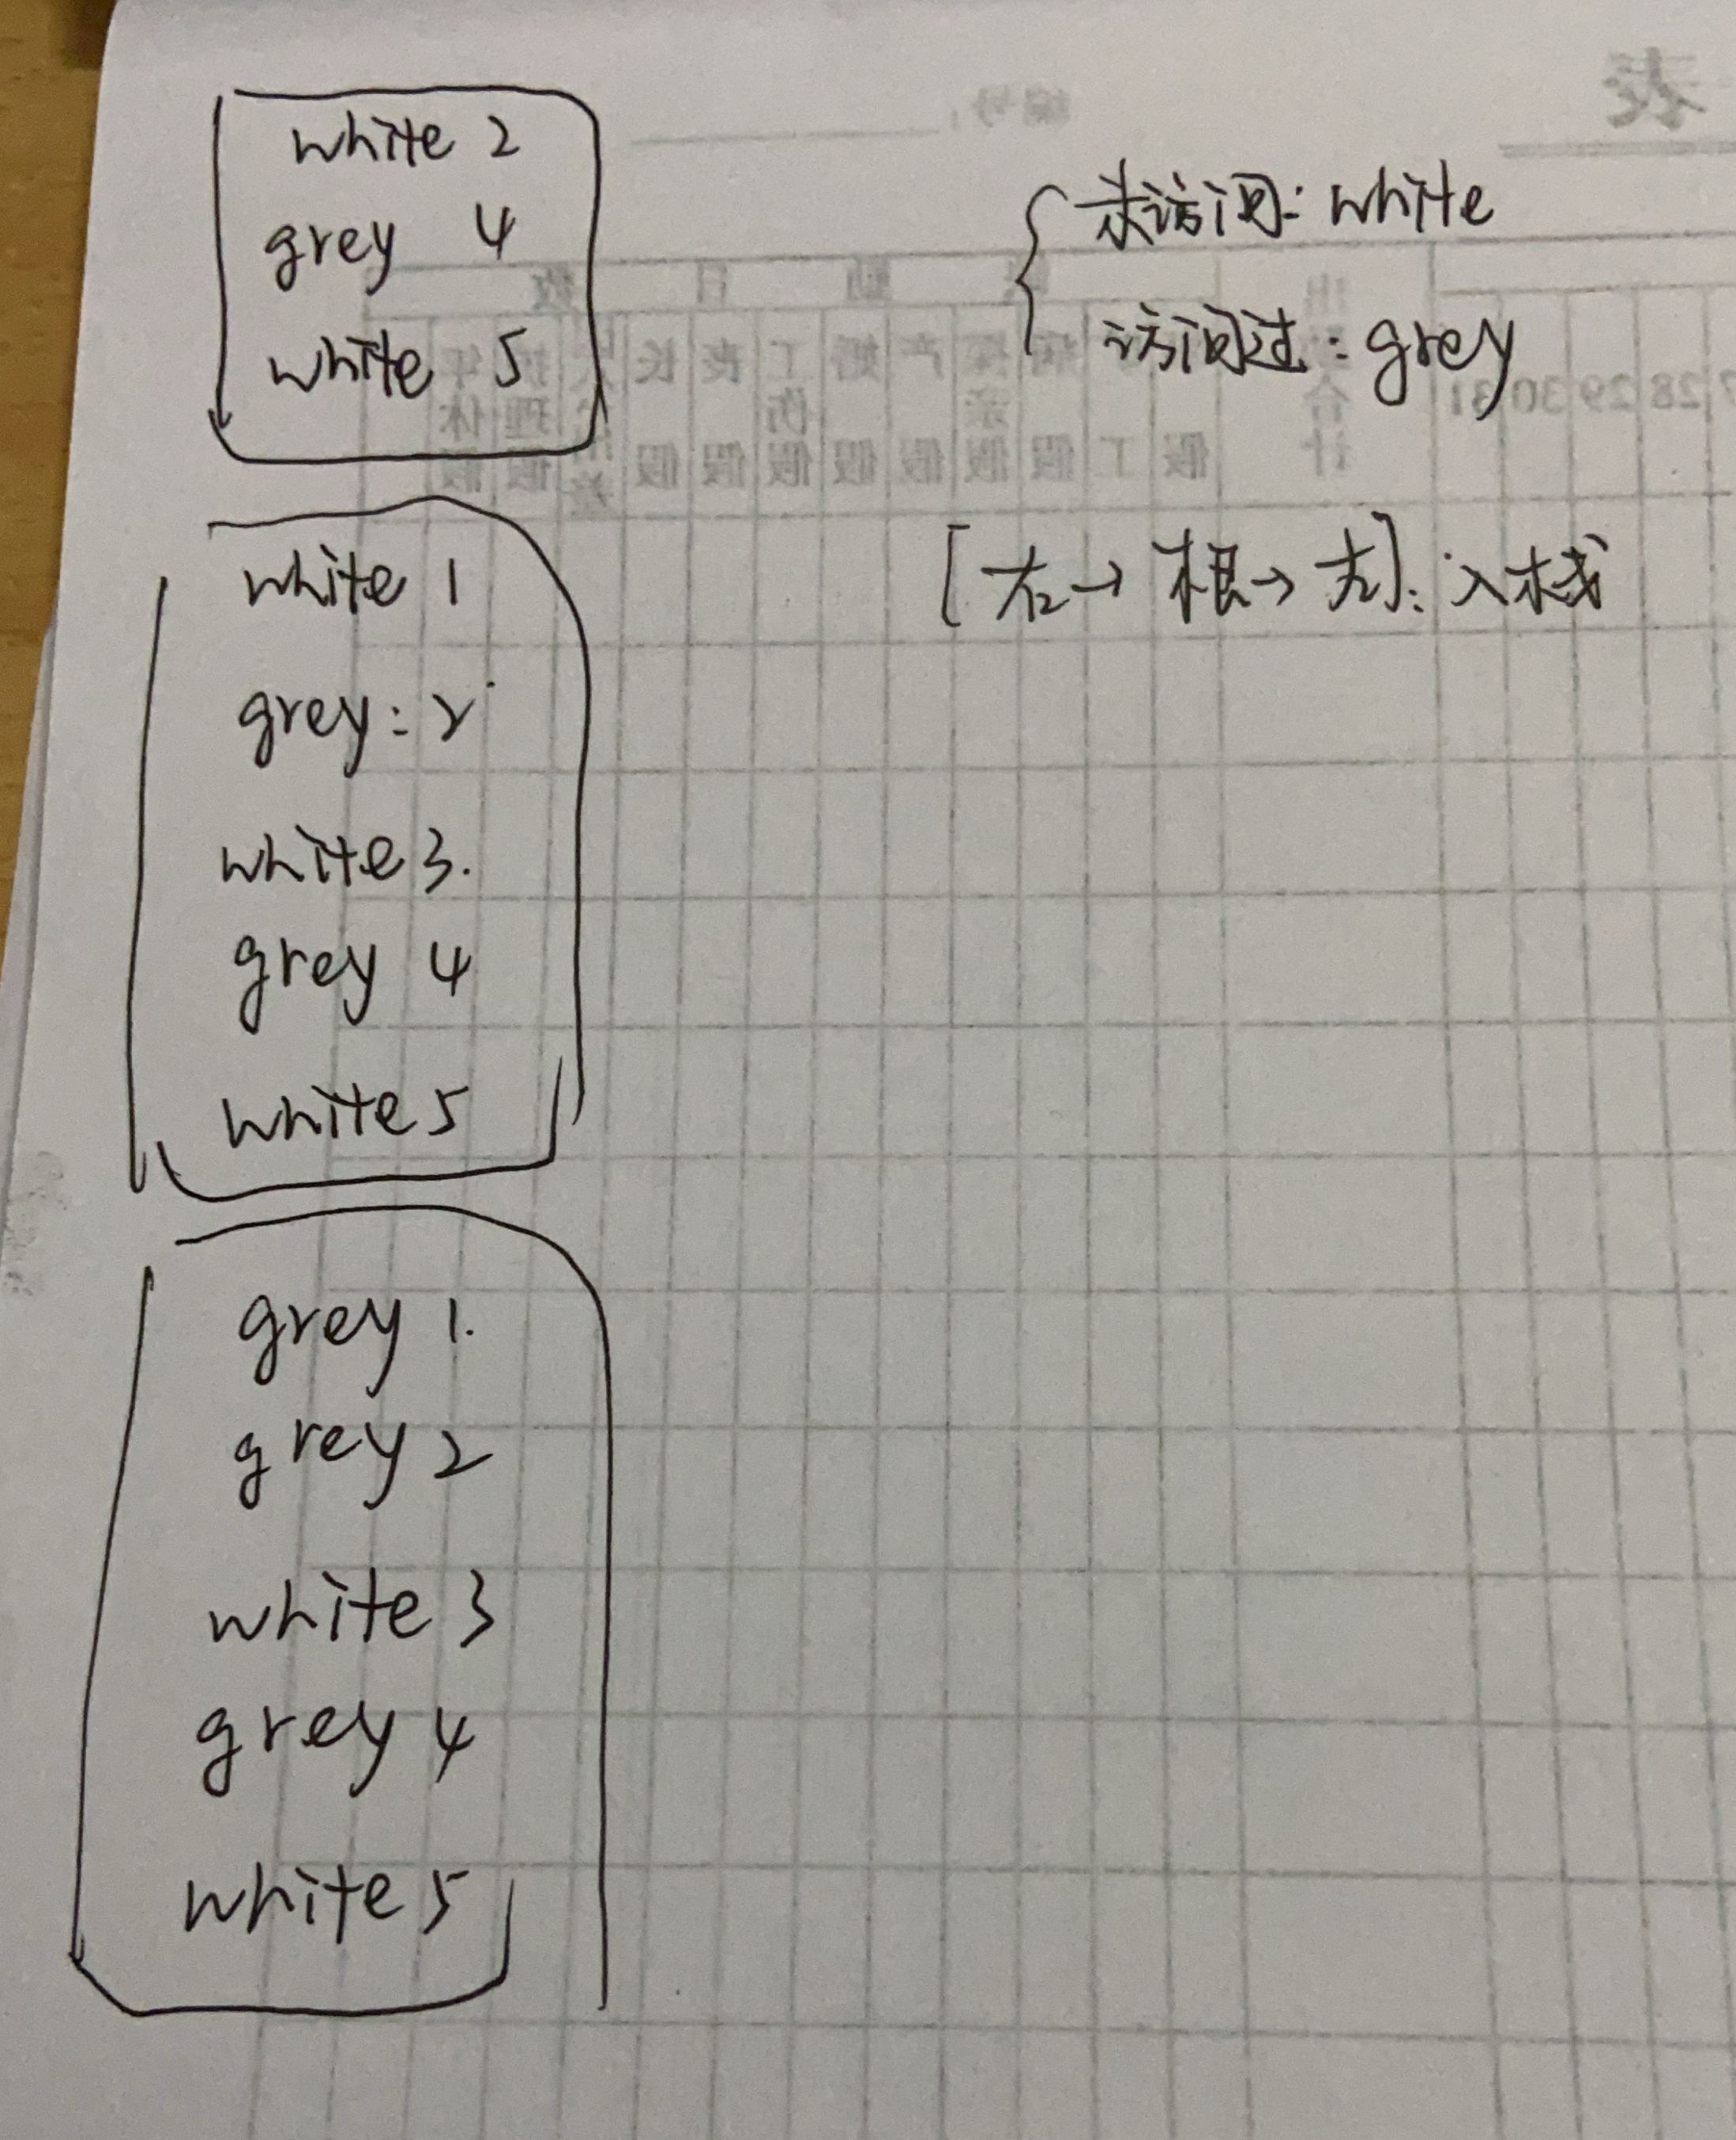 white 2
grey 4
white 5
未访问: white
访问过: grey
[右→根→左]: 入栈
white 1
grey: 2
white 3.
grey 4
white 5
grey 1.
grey 2
white 3
grey 4
white 5